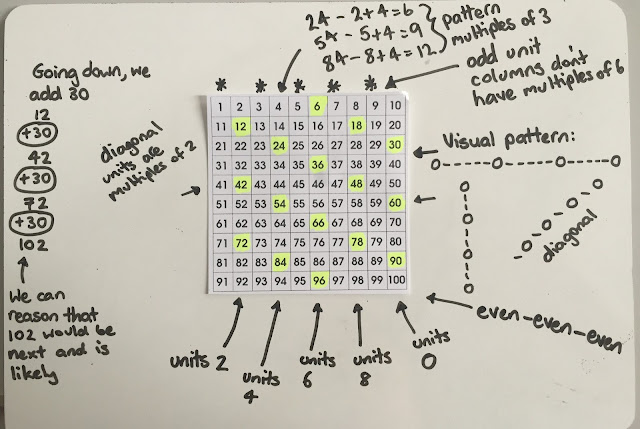 24 - 2+4=6
54 - 5+4=9
84 - 8+4=12
pattern
multiples of 3
odd unit
columns don't
have multiples of 6
Going down, we
add 30
12
+30
42
+30
72
+30
102
We can
reason that
102 would be
next and is
likely
diagonal
units are
multiples of 2
* * * * *
1 2 3 4 5 6 7 8 9 10
11 12 13 14 15 16 17 18 19 20
21 22 23 24 25 26 27 28 29 30
31 32 33 34 35 36 37 38 39 40
41 42 43 44 45 46 47 48 49 50
51 52 53 54 55 56 57 58 59 60
61 62 63 64 65 66 67 68 69 70
71 72 73 74 75 76 77 78 79 80
81 82 83 84 85 86 87 88 89 90
91 92 93 94 95 96 97 98 99 100
Visual pattern:
diagonal
even-even-even
units 2
units
4
units
6
units
8
units
0